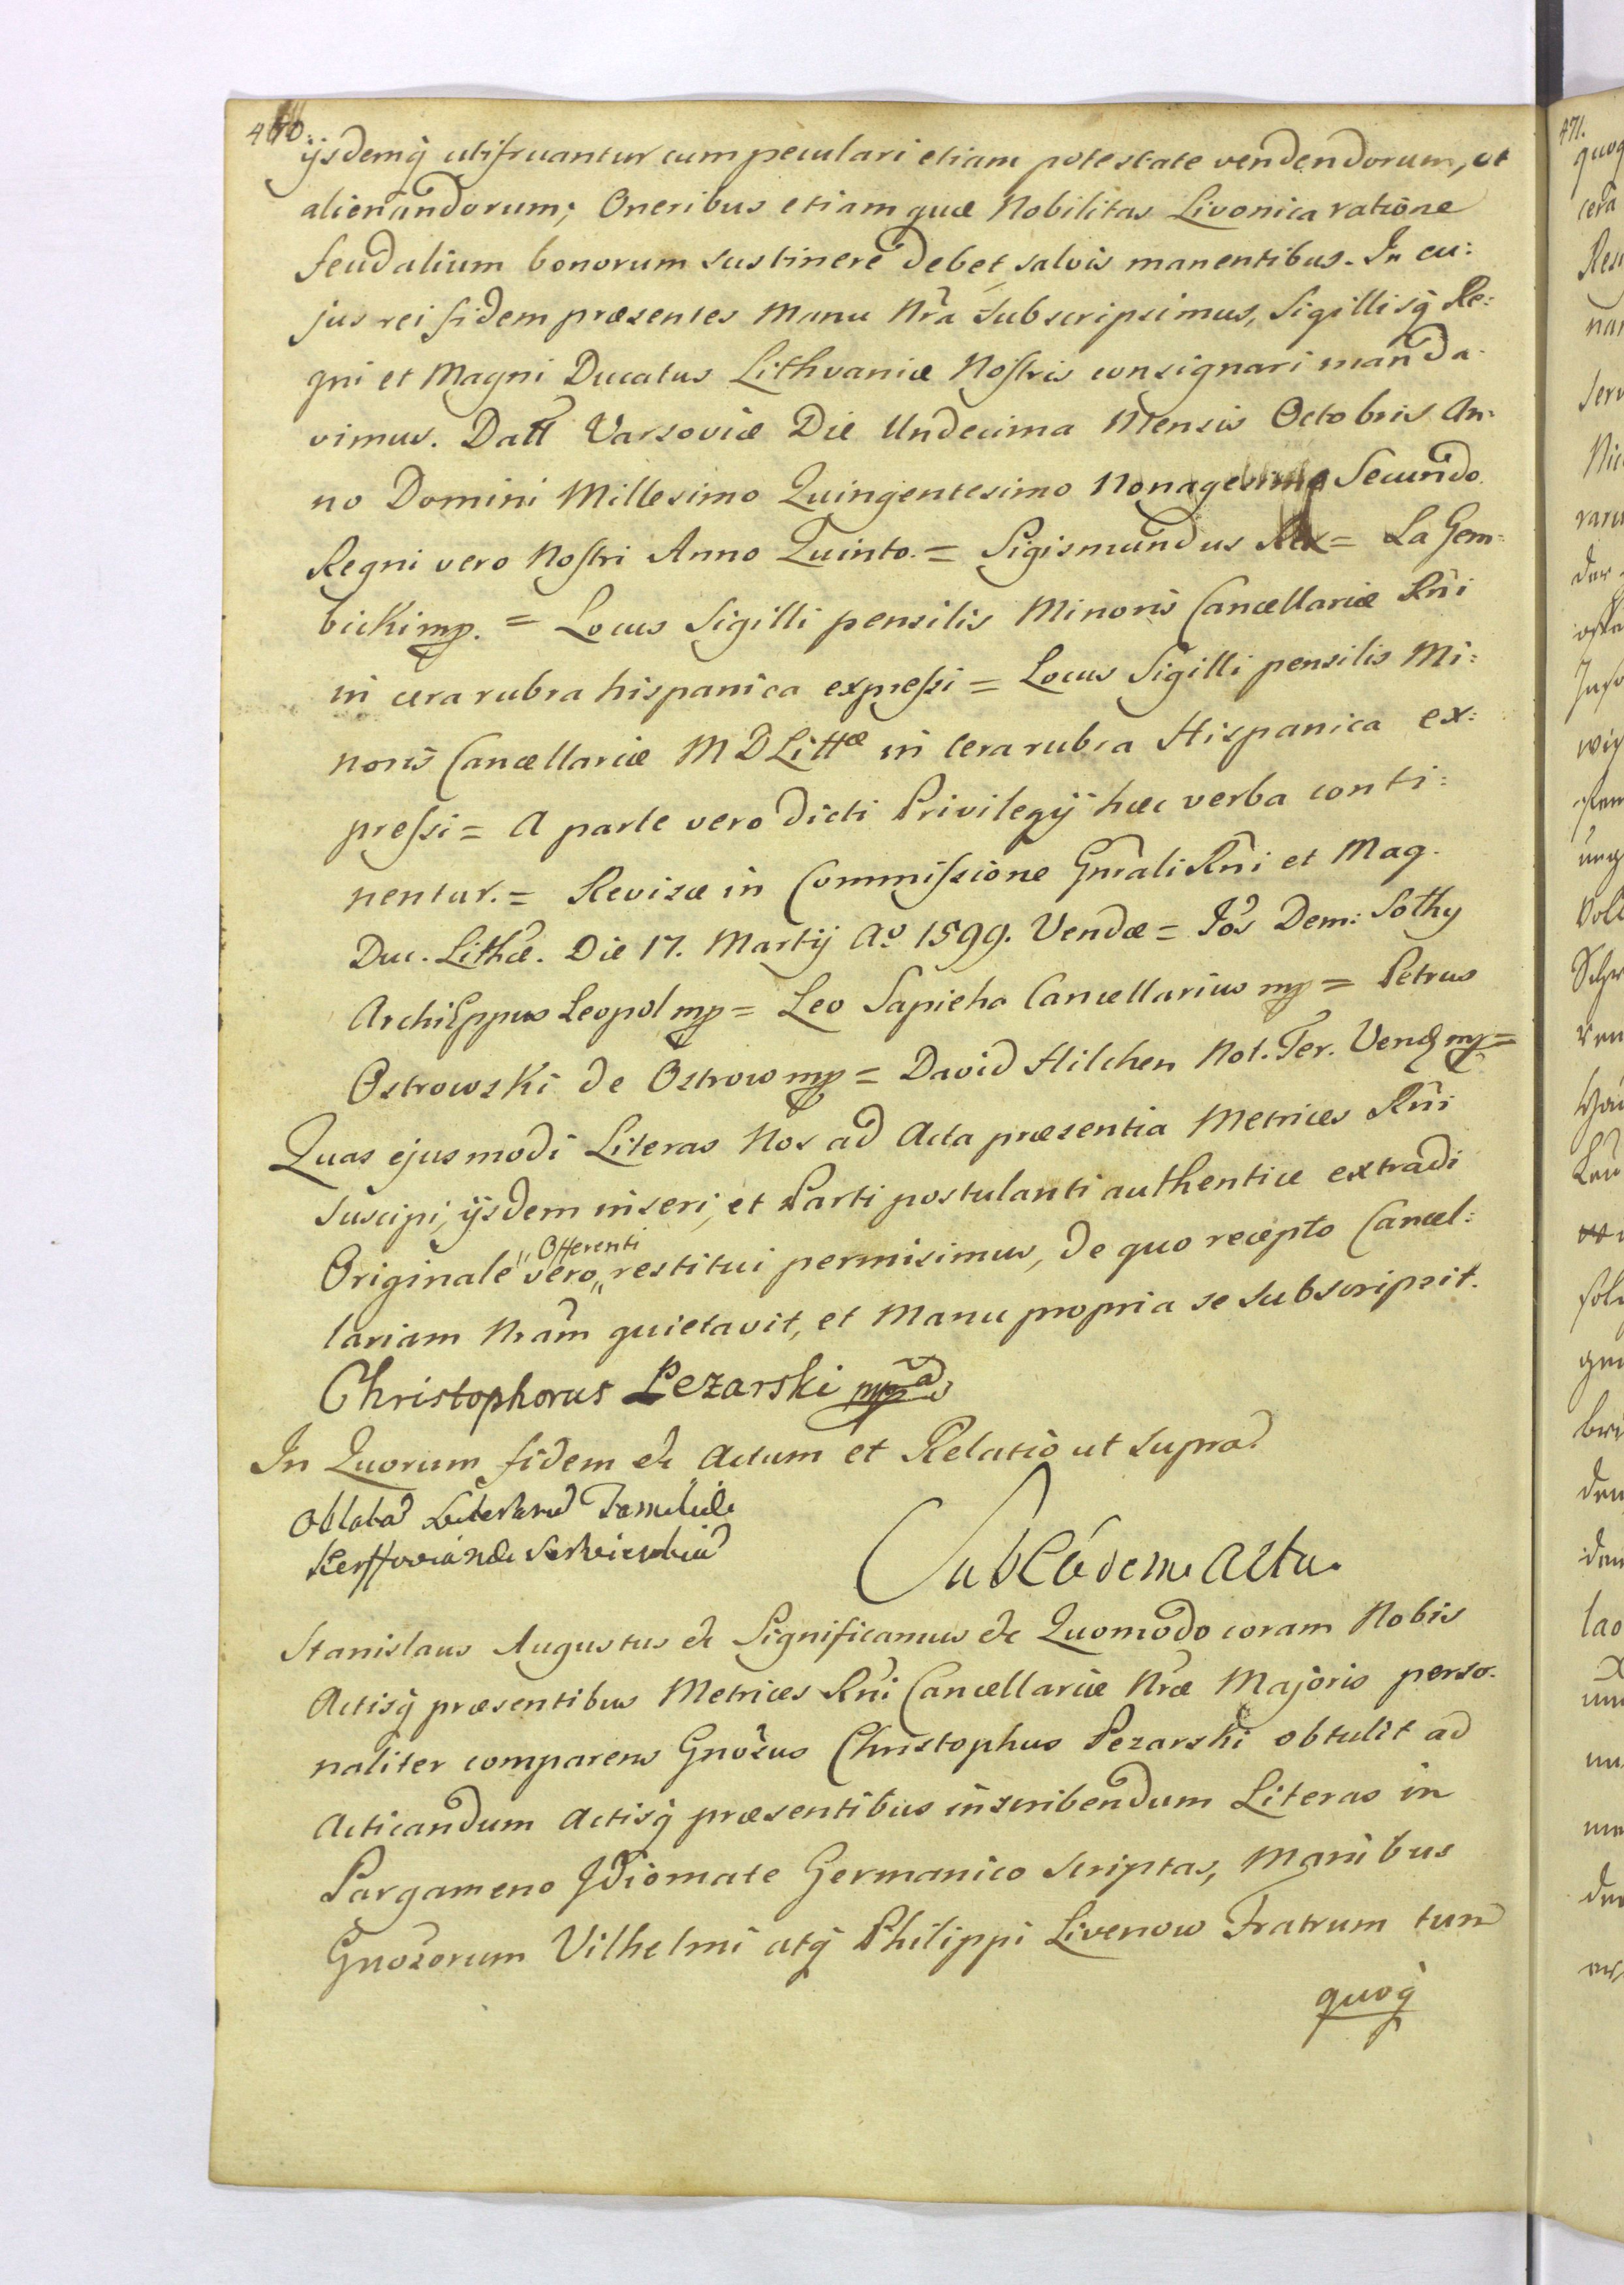 470.
ijsdemq́ utifruantur cum peculari etiam potestate vendendorum, et
alienandorum; Oneribus etiam quæ Nobilitas Livonica ratione
feudalium bonorum sustinere debet, salvis manentibus. In cu:
jus rei fidem præsentes Manu Nrã subscripsimus, Sigillisq́ Re:
gni et Magni Ducatus Lithvaniæ Nostris consignari manda-
vimus. Datt Varsoviæ Die Undecima Mensis Octobris An-
no Domini Millesimo Quingentesimo Nonagesimo Secundo
Regni vero Nostri Anno Quinto. = Sigismundus Rex = La Gem-
bicki mp. = Locus Sigilli pensilis Minoris Cancellariæ Rñi
in cera rubra hispanica expressi = Locus Sigilli pensilis Mi:
noris Cancellariæ M D Littæ in Cera rubra Hispanica ex:
pressi = A parte vero dicti Privilegij hæc verba conti:
nentur. = Revisæ in Commissione Gñrali Rñi et Mag.
Duc. Lithæ. Die 17. Martij Aº 1599. Vendæ = Jos Dem: Sothy
ArchiEppus Leopol mp = Leo Sapieha Cancellarius mp = Petrus
Ostrowski de Ostrow mp = David Hilchen Not. Ter. Vend mp =
Quas ejusmodi Literas Nos ad Acta præsentia Metrices Rñi
suscipi, ijsdem inseri, et Parti postulanti authentice extradi
Offerenti
Originale vero „ restitui permisimus, de quo recepto Cancel:
lariam Nram̃ quietavit, et Manu propria se subscripsit.
Christophorus Pezarski mpa
In Quorum fidem &c Actum et Relatio ut supra.
Oblata Literarum Familiæ
Sub eâdem Acta.
Stanislaus Augustus &c Significamus &c Quomodo coram Nobis
Actisq́ præsentibus Metrices Rñi Cancellariæ Nræ Majoris perso-
naliter comparens Gnosus Christophus Pezarski obtulit ad
Acticandum Actisq́ præsentibus inscribendum Literas in
Pargameno Idiomate Germanico Scriptas, Manibus
Gnosorum Vilhelmi atq́ Philippi Livenow Fratrum tum
quoq́
471.